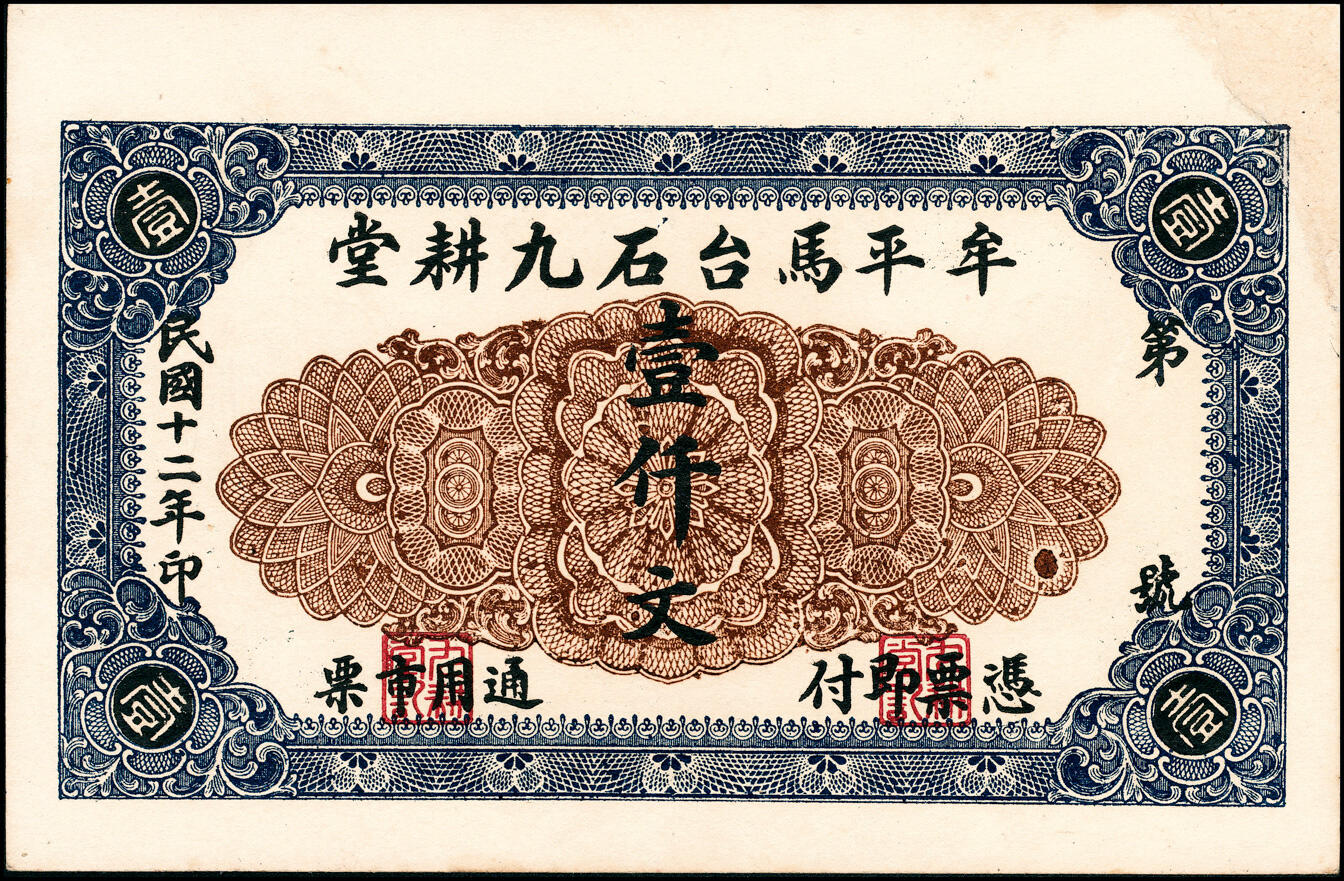 壹
壹
牟平馬台石九耕堂
第
號
壹仟文
民國十二年印
憑票即付
通用重票
壹
壹